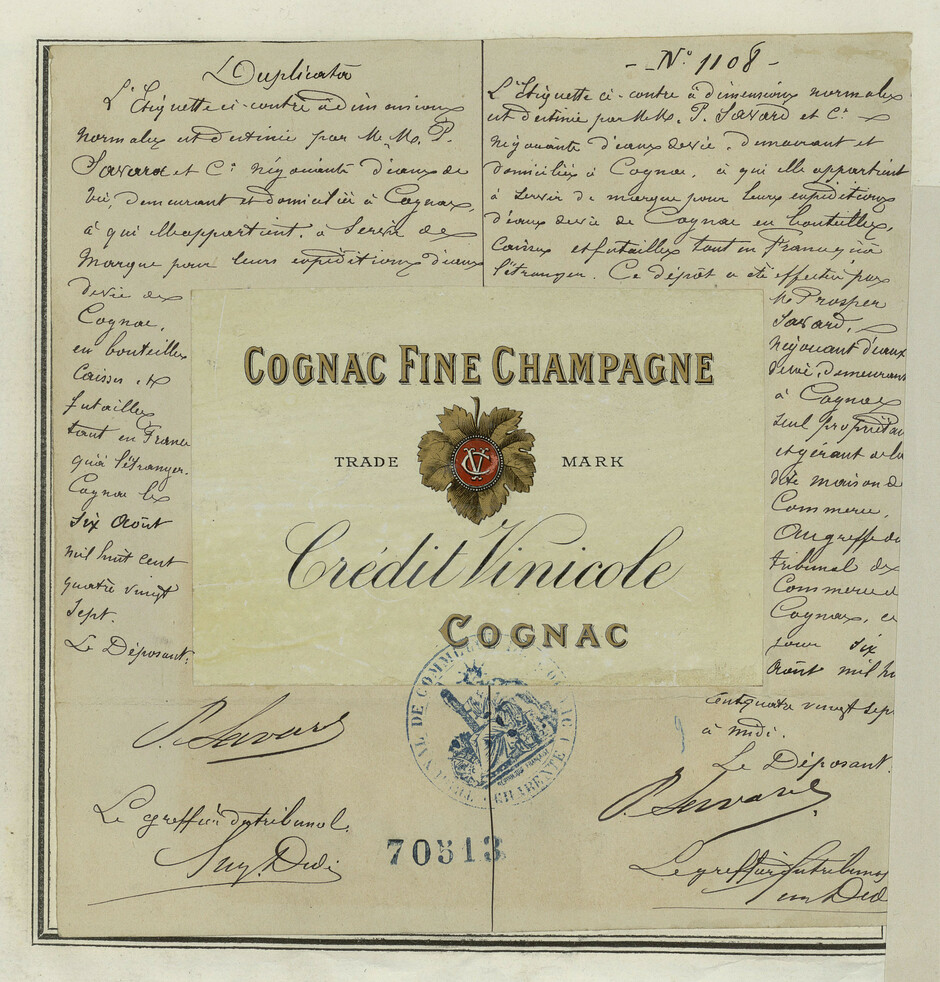 Duplicata
L'Etiquette ci-contre à dimensions
normales est destinée par M.M. P.
Savard et Cie négociants d'eaux de
vie, demeurant et domiciliés à Cognac,
à qui elle appartient, à servir de
marque pour leurs expéditions d'eaux
de vie de
Cognac,
en bouteilles
Caisses et
futailles
tant en France
qu'à l'étranger.
Cognac les
six Août
mil huit cent
quatre vingt
sept.
Le Déposant:
P. Savard
Le greffier du tribunal.
- No 1108 -
L'Etiquette ci-contre à dimensions normales
est destinée par M.M. P. Savard et Cie
négociants d'eaux de vie, demeurant et
domiciliés à Cognac, à qui elle appartient
à servir de marque pour leurs expéditions
d'eaux de vie de Cognac en bouteilles,
Caisses et futailles tant en France qu'à
l'étranger. Ce dépôt a été effectué par
Mr Prosper
Savard,
négociant d'eaux
de vie, demeurant
à Cognac
seul propriétaire
et gérant de la
dite maison de
Commerce,
au greffe du
tribunal de
Commerce d
Cognac, ce
jour six
Août mil hu
cent quatre vingt sept
à midi.
Le Déposant.
P. Savard
Le greffier du tribunal
COGNAC FINE CHAMPAGNE
TRADE MARK
VC
Crédit Vinicole
COGNAC
TRIBUNAL DE COMMERCE DE COGNAC
CHARENTE
70513